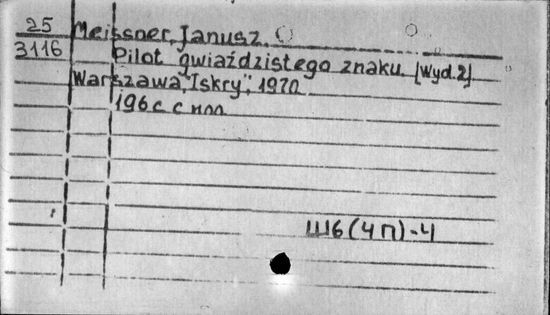 25
3116
Meissner, Janusz.
Pilot gwiaździstego znaku. [Wyd. 2]
Warszawa, "Iskry", 1970
196 с с илл
Ш6(4П)-4